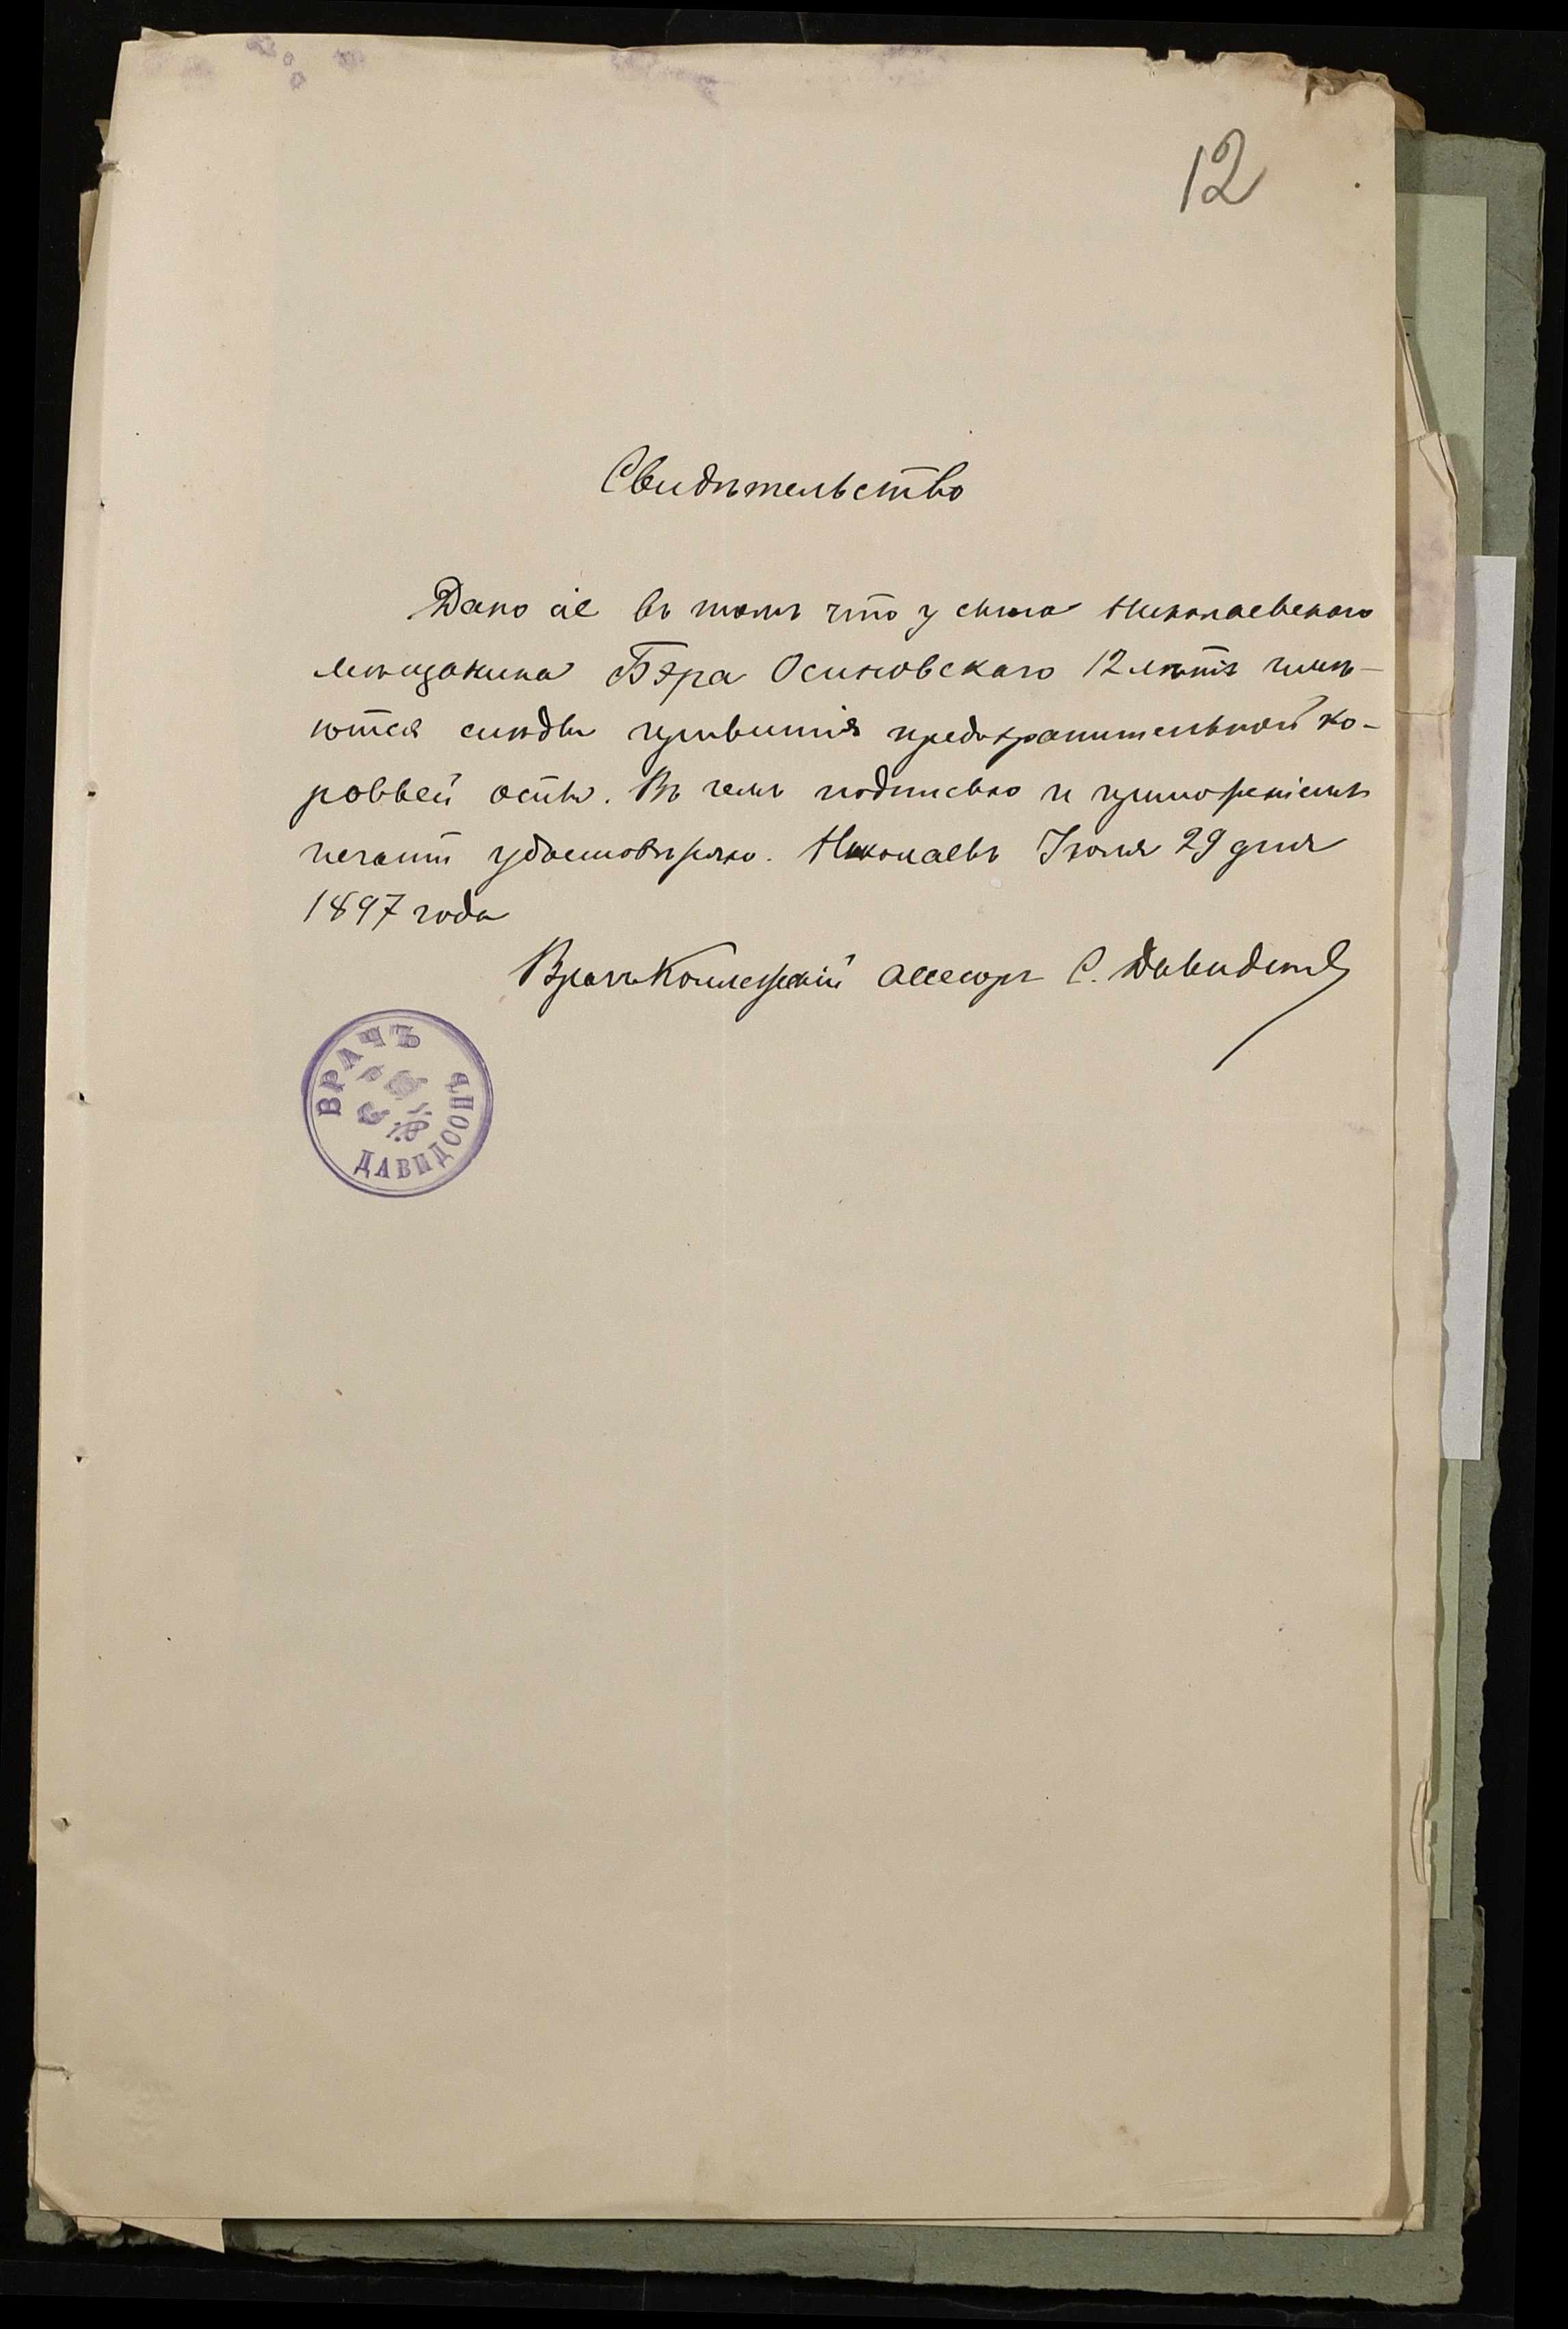 12
Свидѣтельство
Дано сіе въ томъ что у сына Николаевскаго
мѣщанина Бэра Осиповскаго 12 лѣтъ имѣ-
ются слѣды привитія предохранительной ко-
ровьей оспы. Въ чемъ подписью и приложеніемъ
печати удостовѣряю. Николаевъ Іюля 29 дня
1897 года
Врачъ Коллежскій ассесоръ С. Давидсонъ
ВРАЧЪ
ДАВИДСОНЪ